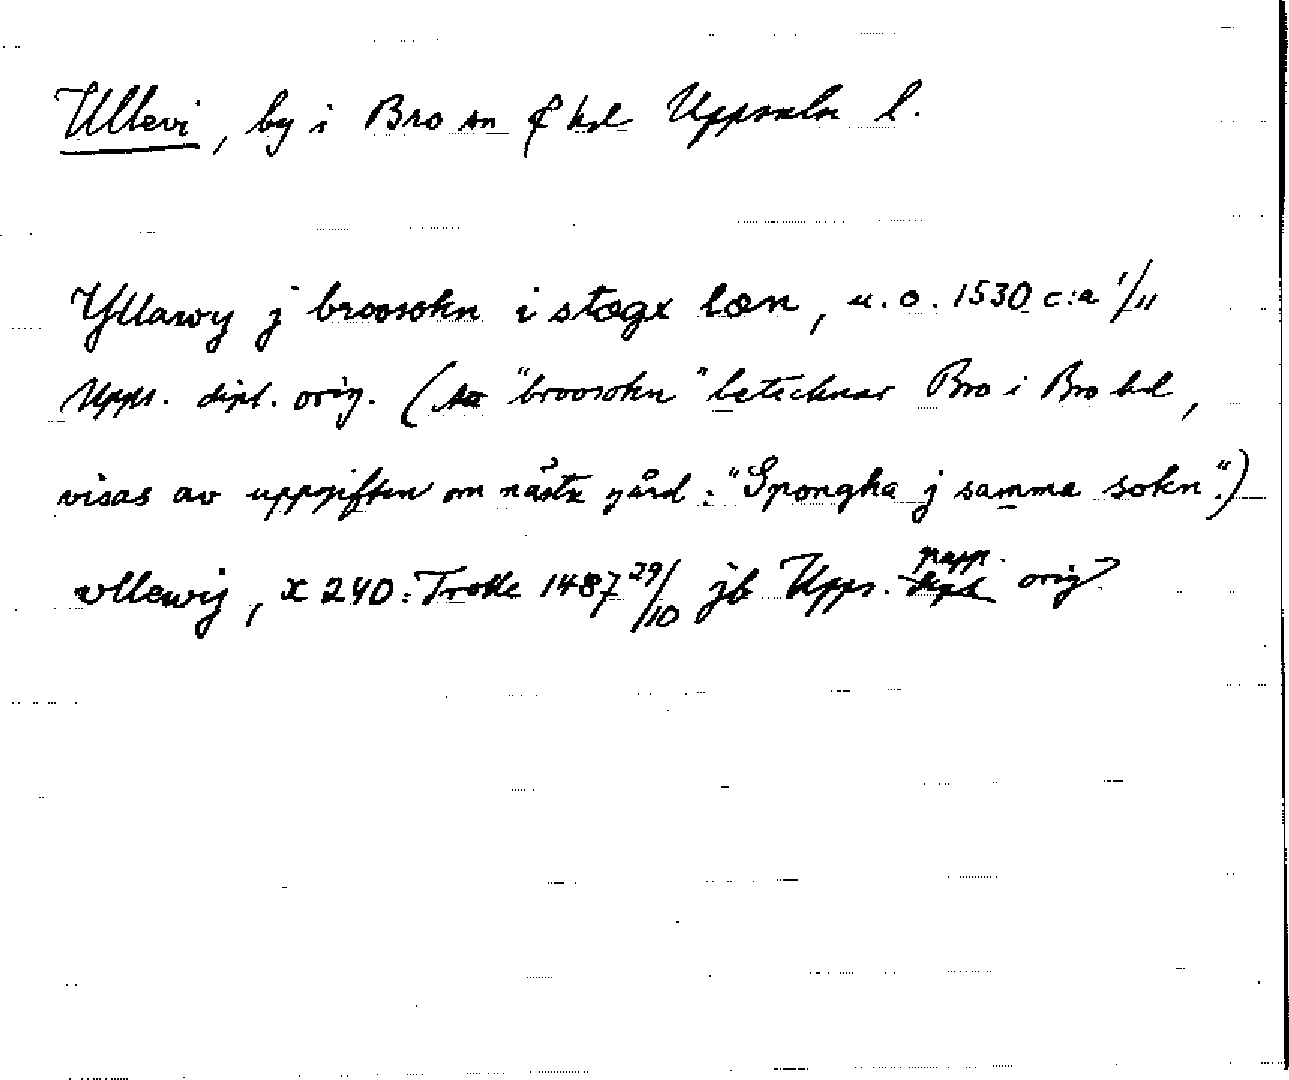 Ullevi, by i Bro sn & hd Uppsala l.
Yllawy j broosokn i stægx læn, u.o. 1530 c:a 1/11
Upps. dipl. orig. ( "broosokn" betecknar Bro i Bro hd,
visas av uppgiften om nästa gård: "Spongha j samma sokn".)
vllewij, x 240: Trolle 1487 29/10 jb Upps. papp. orig